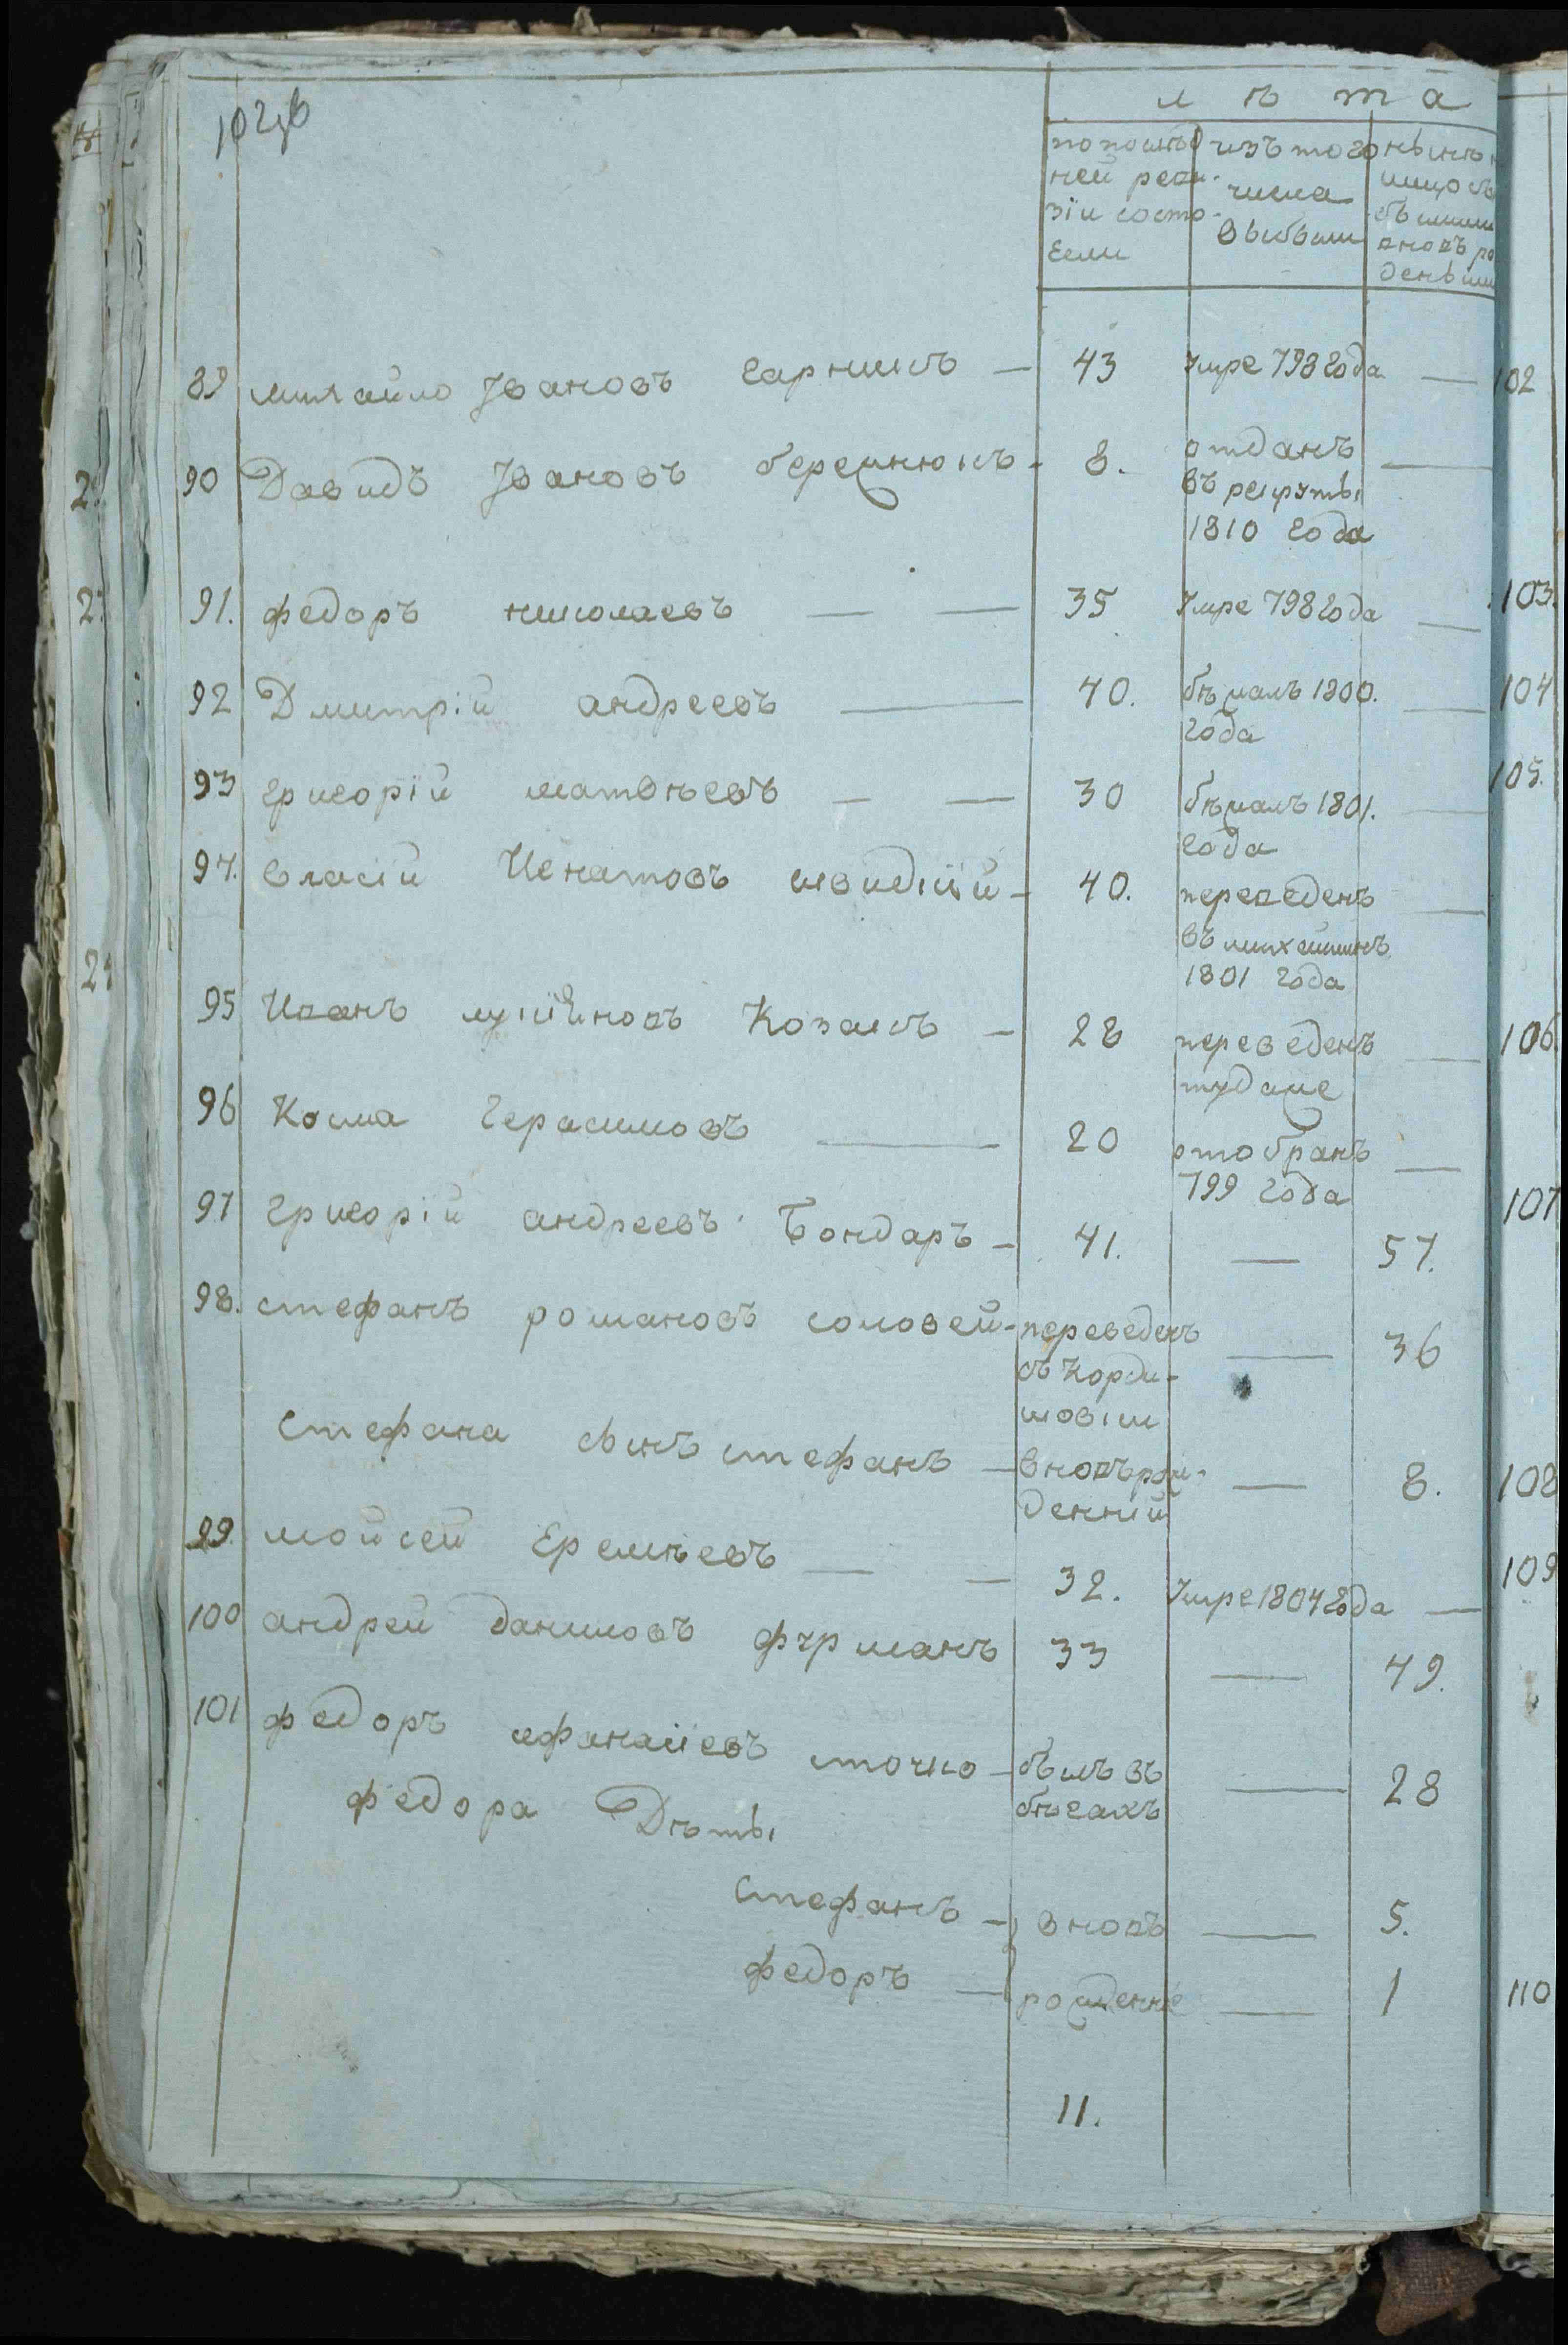 102зв
лѣта
по последней ревизіи состоели
изъ того числа выбыли
89 михайло Ивановъ гарникъ — 43 Умре 798 года —
90 Давидъ Ивановъ бережнюкъ - 8. отданъ —
въ рекруты
1810 года
91. федоръ николаевъ — — 35 Умре 798 года —
92 Дмитрій андреевъ — 40. бѣжалъ 1800. —
года
93 григорій матвѣевъ — — 30 бѣжалъ 1801. —
года
94. власій Игнатовъ швидкій - 40. переведенъ —
въ
1801 года
95 Иванъ Козакъ — 28 переведенъ —
тудаже
96 Косма Герасимовъ — 20 отобранъ —
799 года
97 григорій андреевъ Бондаръ — 41. — 57.
98. стефанъ романовъ соловей - переведенъ — 36
съ Корди-
шовки
Стефана сынъ стефанъ — вновьрож- — 8.
денній
99. мойсей Еремѣевъ — — 32. Умре 1804 года —
100 андрей даниловъ фурманъ 33 — 49.
101 федоръ афанасіевъ точко — былъ въ — 28
бѣгахъ
федора Дѣты
Стефанъ — вновъ — 5.
федоръ — рожденне — 1
11.
102
103.
104
105.
106
107
108
109
110